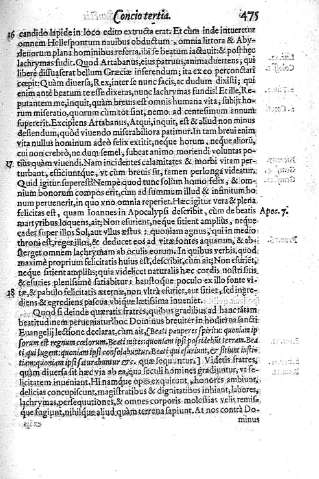 Concio tertia. 475
16 candido lapide in loco edito extructa erat. Et cùm inde intueretur
omnem Hellespontum nauibus obductum, omnia littora & Aby-
denorum plana hominibus referta, ibi se beatum iactauit: & post hęc
lachrymas fudit. Quod Artabanus, eius patruus, animaduertens, qui
liberè dissuaserat bellum Græciæ inferendum; ita ex eo percontari
cœpit: Quàm diuersa, Rex, inter se nunc facis, ac dudum dixisti; qui
enim antè beatum te esse dixeris, nunc lachrymas fundis! Et ille, Re-
putantem me, inquit, quàm breuis est omnis humana vita, subijt ho-
rum miseratio, quorum cùm tot sint, nemo ad centesimum annum
supererit. Excipiens Artabanus, Atqui, inquit, est & aliud non minus
deflendum, quòd viuendo miserabilia patimur. In tam breui enim
vita nullus hominum adeò felix extitit, neque horum, neque aliorū,
cui non crebrò, ne dum semel, subeat animo, moriendi voluntas po-
17. tiùs quàm viuendi. Nam incidentes calamitates & morbi vitam per-
turbant, efficiuntque, vt cùm breuis sit, tamen perlonga videatur.
Quid igitur superest? Nempe quod tunc solùm homo felix, & om-
nium bonorum compos erit, cùm ad illum summum & infinitum bo-
num peruenerit, in quo vno omnia reperiet. Hæc igitur vera & plena
felicitas est, quam Ioannes in Apocalypsi describit, cùm de beatis Apoc. 7.
martyribus loquens, ait: Non esurient, neque sitient amplius, neque
cadet super illos Sol, aut vllus æstus: quoniam agnus, qui in medio
throni est, reget illos, & deducet eos ad vitæ fontes aquarum, & ab-
sterget omnem lachrymam ab oculis eorum. In quibus verbis, quod
maximè proprium felicitatis huius est, describit, cùm ait; Non esurient,
neque sitient amplius; quia videlicet naturalis hæc cordis nostri sitis,
& esuries plenissimè satiabitur: haustoque poculo ex illo fonte vi-
18 tæ, & pabulo felicitatis æternæ, non vltrà esuriet, aut sitiet, sed ingre-
diens & egrediens pascua vbique latissima inueniet.
Quod si deinde quæratis fratres, quibus gradibus ad hanc tantam
beatitudinem perueniatur? hoc Dominus breuiter in hodierna sancti
Euangelij lectione declarat, cùm ait, Beati pauperes spiritu: quoniam ip-
sorum est regnum cœlorum. Beati mites: quoniam ipsi possidebunt terram. Bea-
ti qui lugent: quoniam ipsi consolabuntur. Beati qui esuriunt, & sitiunt iusti-
tiam: quoniam ipsi saturabuntur &c. quæ sequuntur. Videtis fratres,
quàm diuersa sit hæc via ab ea, qua seculi homines gradiuntur, vt fe-
licitatem inueniant. Hi namque opes exquirunt, honores ambiunt,
delicias concupiscunt, magistratibus & dignitatibus inhiant, labores,
lachrymas, persequutiones, & omnes corporis molestias velis remis-
que fugiunt, nihilque aliud quàm terrena sapiunt. At nos contrà Do-
minus